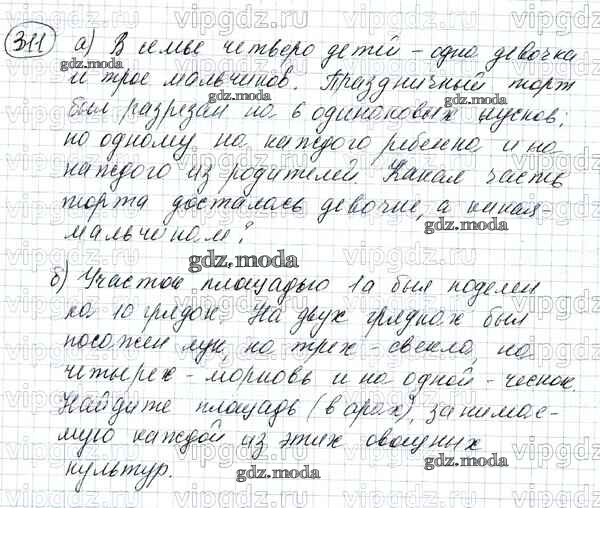 311 а) В семье четверо детей – одна девочка
и трое мальчиков. Праздничный торт
был разрезан на 6 одинаковых кусков:
по одному на каждого ребенка и на
каждого из родителей Какая часть
торта досталась девочке, а какая –
мальчикам?
б) Участок площадью 1а был поделен
на 10 грядок. На двух грядках был
посажен лук, на трех – свекла, на
четырех – морковь и на одной – чеснок.
Найдите площадь (в арах), занимае-
мую каждой из этих овощных
культур.
gdz.moda
gdz.moda
gdz.moda
gdz.moda
gdz.moda
gdz.moda
gdz.moda
gdz.moda
gdz.moda